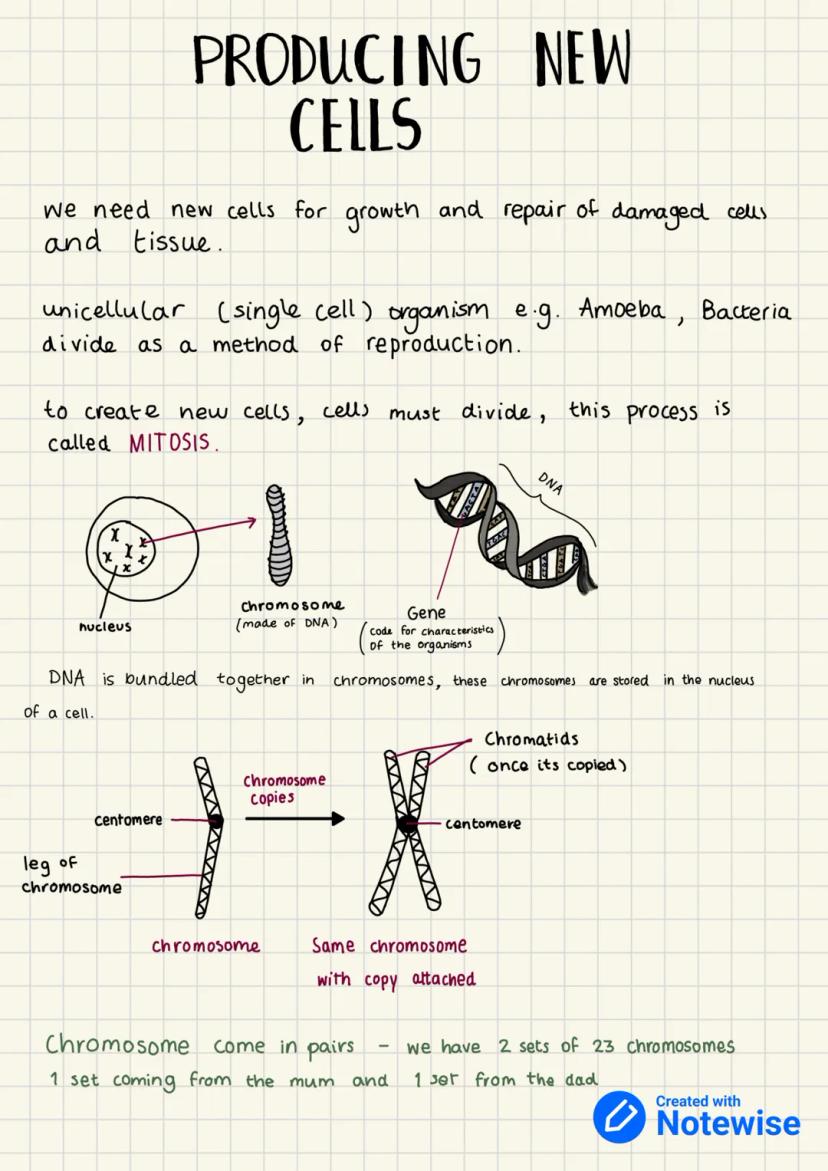 PRODUCING NEW
CELLS
we need new cells for growth and repair of damaged cells
and tissue.
unicellular (single cell) organism e.g. Amoeba, Bacteria
divide as a method of reproduction.
to create new cells, cells must divide, this process is
called MITOSIS.
DNA
nucleus
chromosome
(made of DNA)
Gene
(code for characteristics
of the organisms)
DNA is bundled together in chromosomes, these chromosomes are stored in the nucleus
of a cell.
Chromatids
(once its copied)
Chromosome
copies
centomere
centomere
leg of
chromosome
chromosome
Same chromosome
with copy attached
Chromosome come in pairs - we have 2 sets of 23 chromosomes
1 set coming from the mum and 1 set from the dad
Created with
Notewise